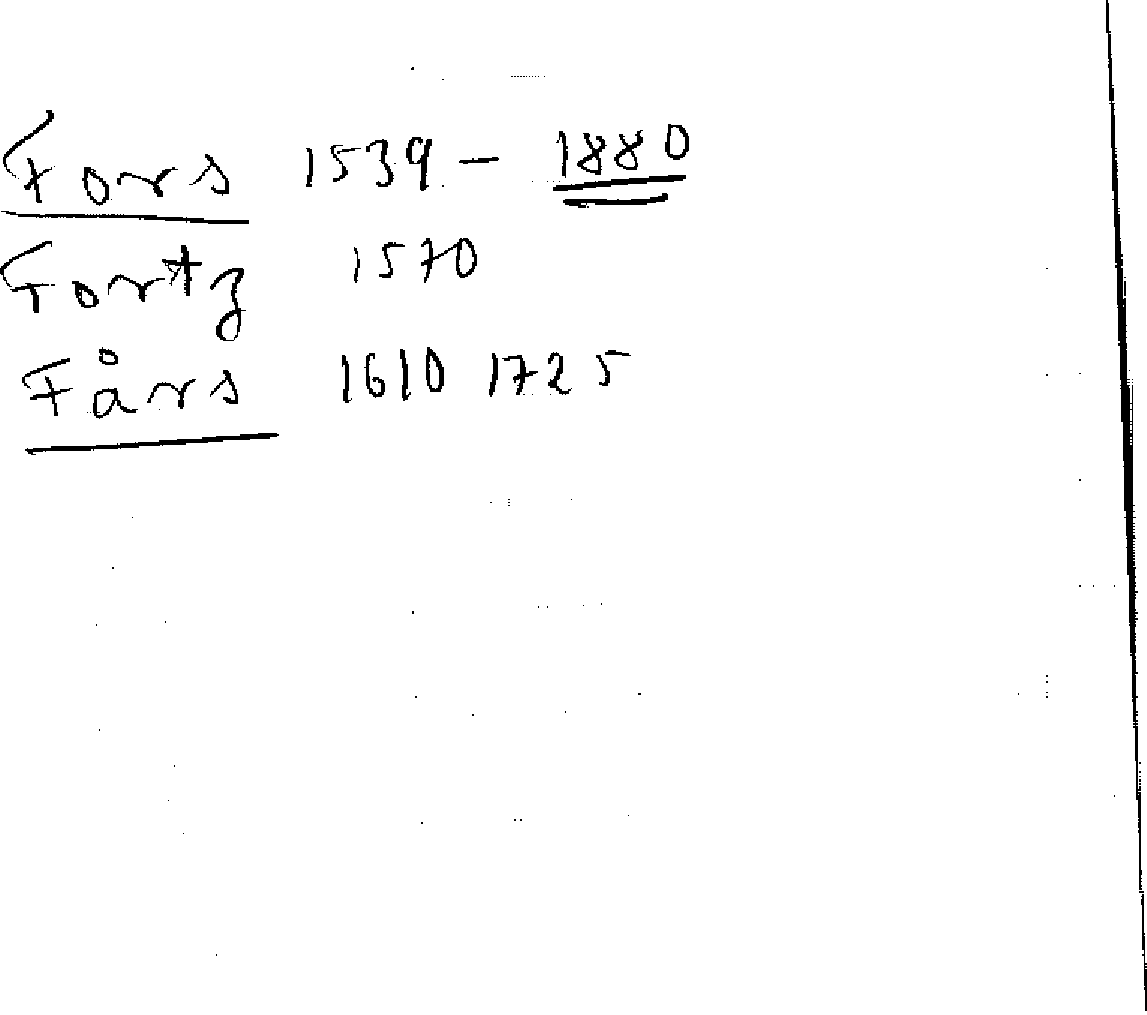 Fors 1539 - 1880
Fortz 1570
Fårs 1610 1725